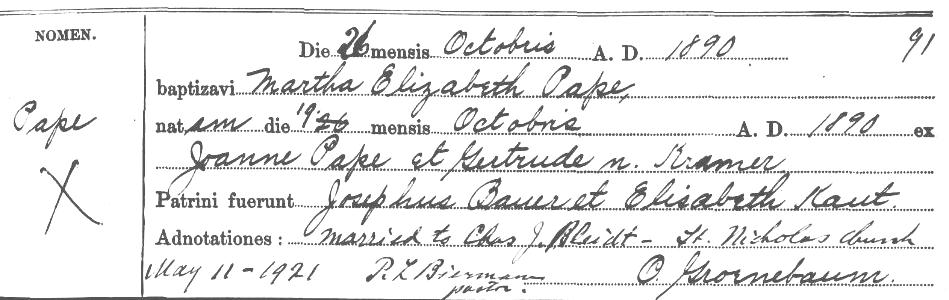 NOMEN.
Die 26 mensis Octobris A. D. 1890 91
baptizavi Martha Elizabeth Pape,
Pape
nat am die 19 26 mensis Octobris A. D. 1890 ex
Joanne Pape et Gertrude n. Kramer
X
Patrini fuerunt Josephus Bauer et Elisabeth Kaut.
Adnotationes: married to Chas J. Bleidt - St. Nicholas church
May 11-1921 R L Biermann O. Groenebaum.
pastor.